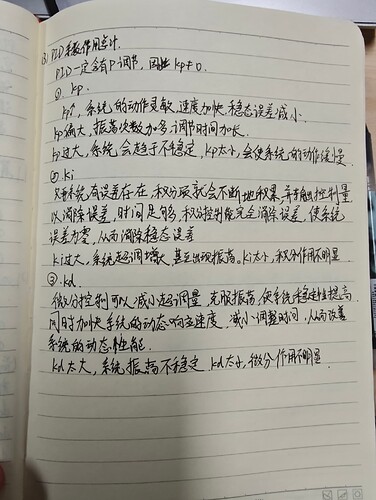 (3) PID系数作用总计.
PID一定含有P调节, 因此 kp≠0.
① kp.
kp↑, 系统的动作灵敏, 速度加快, 稳态误差减小.
kp偏大, 振荡次数加多, 调节时间加长.
kp过大, 系统会趋于不稳定, kp太小, 会使系统的动作缓慢.
② ki
只要系统有误差存在, 积分项就会不断地积累, 并输出控制量
以消除误差, 时间足够, 积分控制能完全消除误差, 使系统
误差为零, 从而消除稳态误差
ki过大, 系统超调增大, 甚至出现振荡. ki太小, 积分作用不明显
③ kd.
微分控制可以减小超调量, 克服振荡, 使系统稳定性提高
同时加快系统的动态响应速度, 减小调整时间, 从而改善
系统的动态性能.
kd太大, 系统振荡不稳定. kd太小, 微分作用不明显.